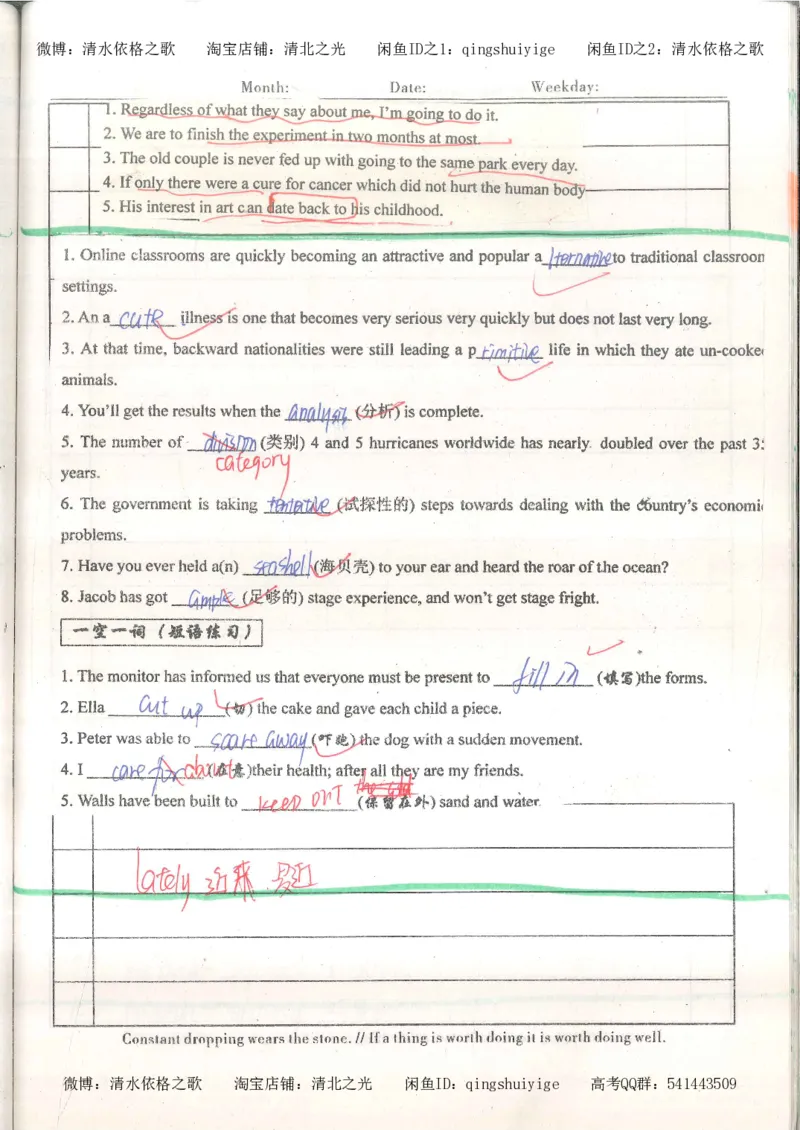 微博：清水依格之歌 淘宝店铺：清北之光 闲鱼ID之1：qingshuiyige 闲鱼ID之2：清水依格之歌
Month: Date: Weekday:
1. Regardless of what they say about me, I'm going to do it.
2. We are to finish the experiment in two months at most.
3. The old couple is never fed up with going to the same park every day.
4. If only there were a cure for cancer which did not hurt the human body
5. His interest in art can date back to his childhood.
1. Online classrooms are quickly becoming an attractive and popular alternative to traditional classroon
settings.
2. An acute illness is one that becomes very serious very quickly but does not last very long.
3. At that time, backward nationalities were still leading a primitive life in which they ate un-cooke
animals.
4. You'll get the results when the analysis (分析) is complete.
5. The number of division (类别) 4 and 5 hurricanes worldwide has nearly doubled over the past 3
category
years.
6. The government is taking tentative (试探性的) steps towards dealing with the country's economi
problems.
7. Have you ever held a(n) seashell (海贝壳) to your ear and heard the roar of the ocean?
8. Jacob has got ample (足够的) stage experience, and won't get stage fright.
一空一词（短语练习）
1. The monitor has informed us that everyone must be present to fill in (填写)the forms.
2. Ella cut up (切) the cake and gave each child a piece.
3. Peter was able to scare away (吓跑) the dog with a sudden movement.
4. I care for about (在意)their health; after all they are my friends.
5. Walls have been built to keep out (保留在外) sand and water.
lately 近来 最近
Constant dropping wears the stone. // If a thing is worth doing it is worth doing well.
微博：清水依格之歌 淘宝店铺：清北之光 闲鱼ID：qingshuiyige 高考QQ群：541443509